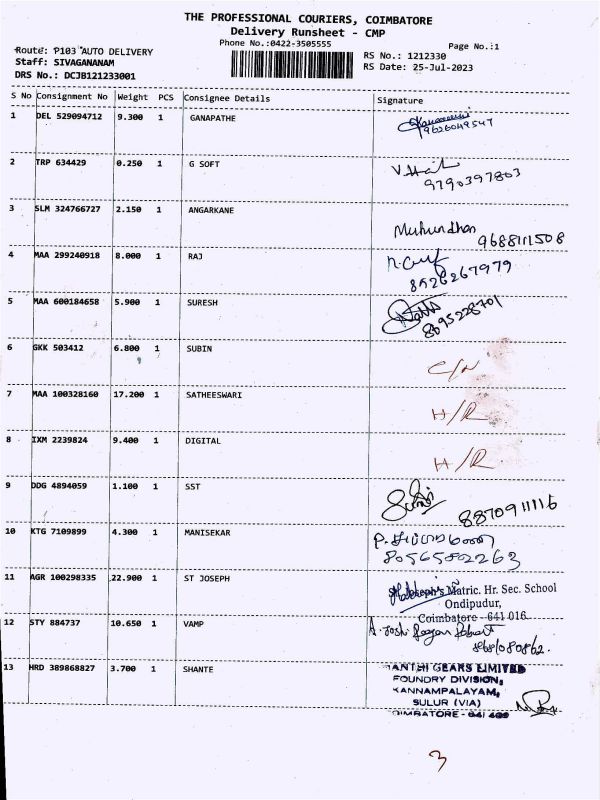 THE PROFESSIONAL COURIERS, COIMBATORE
Delivery Runsheet - CMP
Phone No.:0422-3505555
Page No.:1
Route: P103 AUTO DELIVERY
RS No.: 1212330
Staff: SIVAGANANAM
RS Date: 25-Jul-2023
DRS No.: DCJB121233001
S No Consignment No Weight PCS Consignee Details Signature
1 DEL 529094712 9.300 1 GANAPATHE
2 TRP 634429 0.250 1 G SOFT
9790397803
3 SLM 324766727 2.150 1 ANGARKANE
Muhundhan
9688111508
4 MAA 299240918 8.000 1 RAJ
8526267979
5 MAA 600184658 5.900 1 SURESH
8695228701
6 GKK 503412 6.800 1 SUBIN
C/N
7 MAA 100328160 17.200 1 SATHEESWARI
H/R
8 IXM 2239824 9.400 1 DIGITAL
H/R
9 DDG 4894059 1.100 1 SST
8870911116
10 KTG 7109899 4.300 1 MANISEKAR
80565802263
11 AGR 100298335 22.900 1 ST JOSEPH
Matric. Hr. Sec. School
Ondipudur,
Coimbatore - 641 016.
12 STY 884737 10.650 1 VAMP
13 HRD 389868827 3.700 1 SHANTE
GEARS LIMITED
FOUNDRY DIVISION,
KANNAMPALAYAM,
SULUR (VIA)
3